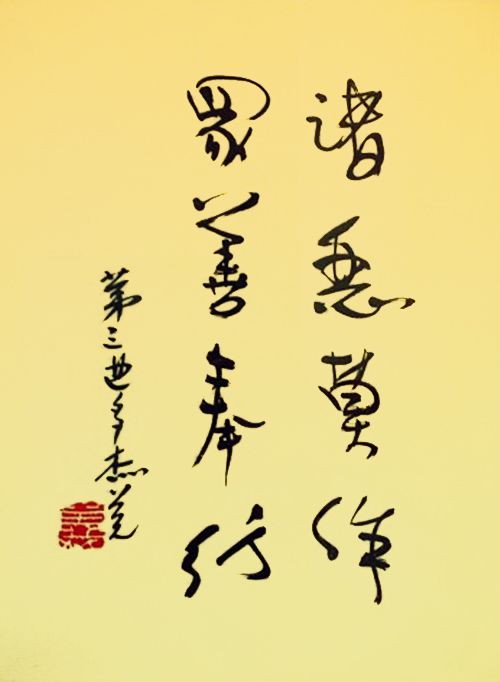 诸恶莫作
眾善奉行
第三世多杰羌